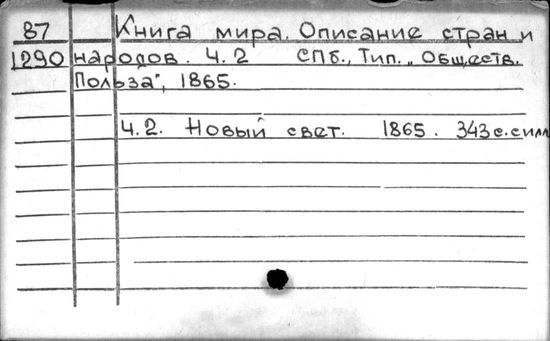 87 Книга мира. Описание стран и
1290 народов. Ч.2 СПб., Тип. „Обществ.
Польза", 1865.
Ч.2. Новый свет. 1865. 343 с. с илл